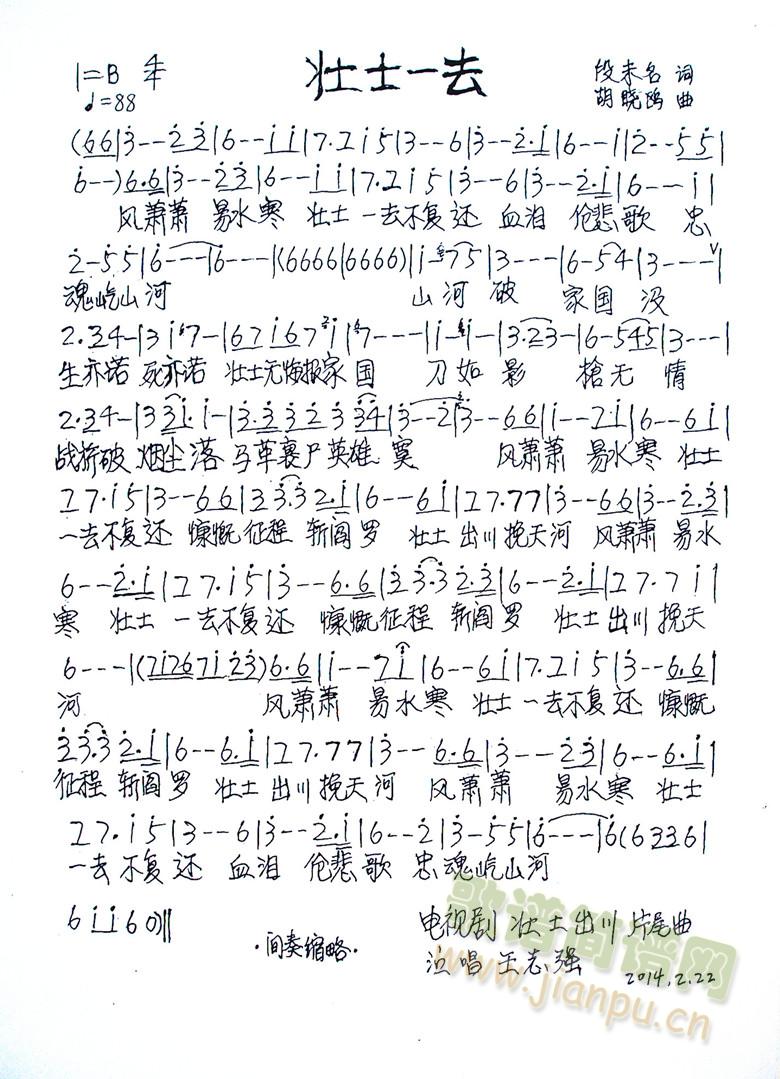 1=B 4/4
壮士一去
段未名 词
♩=88
胡晓鸥 曲
(66|3--23|6--11|7.215|3--6|3--2.1|6--1|2--55|
6--)6.6|3--23|6--11|7.215|3--6|3--2.1|6--1|
风萧萧 易水寒 壮士 一去不复还 血泪 伧悲歌 忠
2-55|6---|6---|(6666|6666)|1-75|3---|6-54|3---|
魂屹山河 山河破 家国没
2.34-|317-|671671|7---|1-1-|3.23-|6-545|3---|
生亦诺 死亦诺 壮士无悔报家国 刀如影 槍无情
2.34-|331.1-|3.3323334|3--2|3--66|1--71|6--61|
战挢破 烟尘落 马革裹尸英雄寞 风萧萧 易水寒 壮士
27.15|3--66|333.32.1|6--61|27.77|3--66|3--2.3|
一去不复还 慷慨征程 斩阎罗 壮士出川挽天河 风萧萧 易水
6--2.1|27.15|3--6.6|333.32.3|6--2.1|27.71|
寒 壮士 一去不复还 慷慨征程 斩阎罗 壮士出川挽天
6---|(71267123)6.6|1--71|6--61|7.215|3--6.6|
河 风萧萧 易水寒 壮士 一去不复还 慷慨
333.32.1|6--6.1|27.77|3--6.6|3--23|6--6.1|
征程 斩阎罗 壮士出川挽天河 风萧萧 易水寒 壮士
27.15|3--6|3--2.1|6--2|3-55|6---|6(6336|
一去不复还 血泪 伧悲歌 忠魂屹山河
61160)||
·间奏缩略·
电视剧 壮士出川 片尾曲
演唱 王志强
2014.2.22
歌谱简谱网
www.jianpu.cn